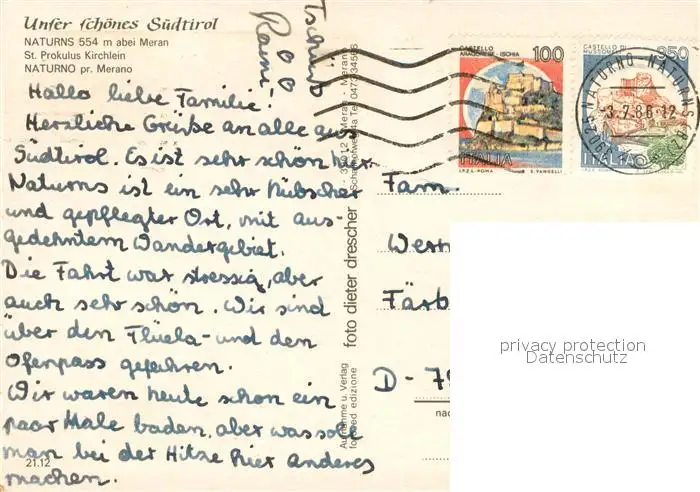 Unser schönes Südtirol
NATURNS 554 m abei Meran
St. Prokulus Kirchlein
NATURNO pr. Merano
Hallo liebe Familie!
Herzliche Grüße an alle aus
Südtirol. Es ist sehr schön hier.
Naturns ist ein sehr hübscher
und gepflegter Ort, mit aus-
gedehntem Wandergebiet.
Die Fahrt war stressig, aber
auch sehr schön. Wir sind
über den Flüela- und den
Ofenpass gefahren.
Wir waren heute schon ein
paar Male baden, aber was soll
man bei der Hitze hier anderes
machen.
21.12
Tschüß
foto dieter drescher
Aufnahme u. Verlag
foto ed edizione
39012 Meran - Merano
CASTELLO
ARAGONESE - ISCHIA
100
ITALIA
I.P.Z.S. - ROMA
E. VANGELLI
CASTELLO DI
MUSSOMELI
250
ITALIA
I.P.Z.S. - ROMA
39025 NATURNO - NATURNS BZ
3.7.86-12
Fam.
Wern
Färb
D - 79
privacy protection
Datenschutz